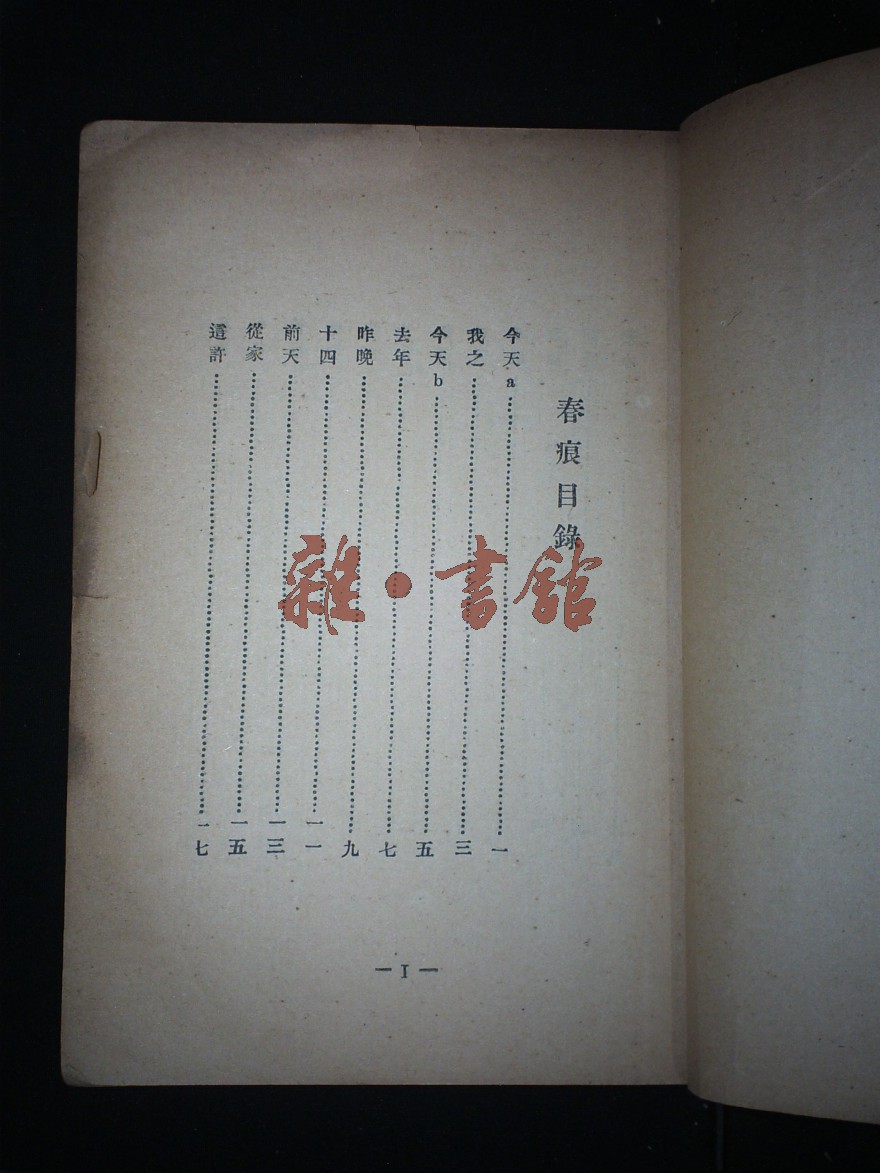 春痕目錄
今天a 一
我之 三
今天b 五
去年 七
昨晚 九
十四 一一
前天 一三
從家 一五
這許 一七
— I —
雜·書館